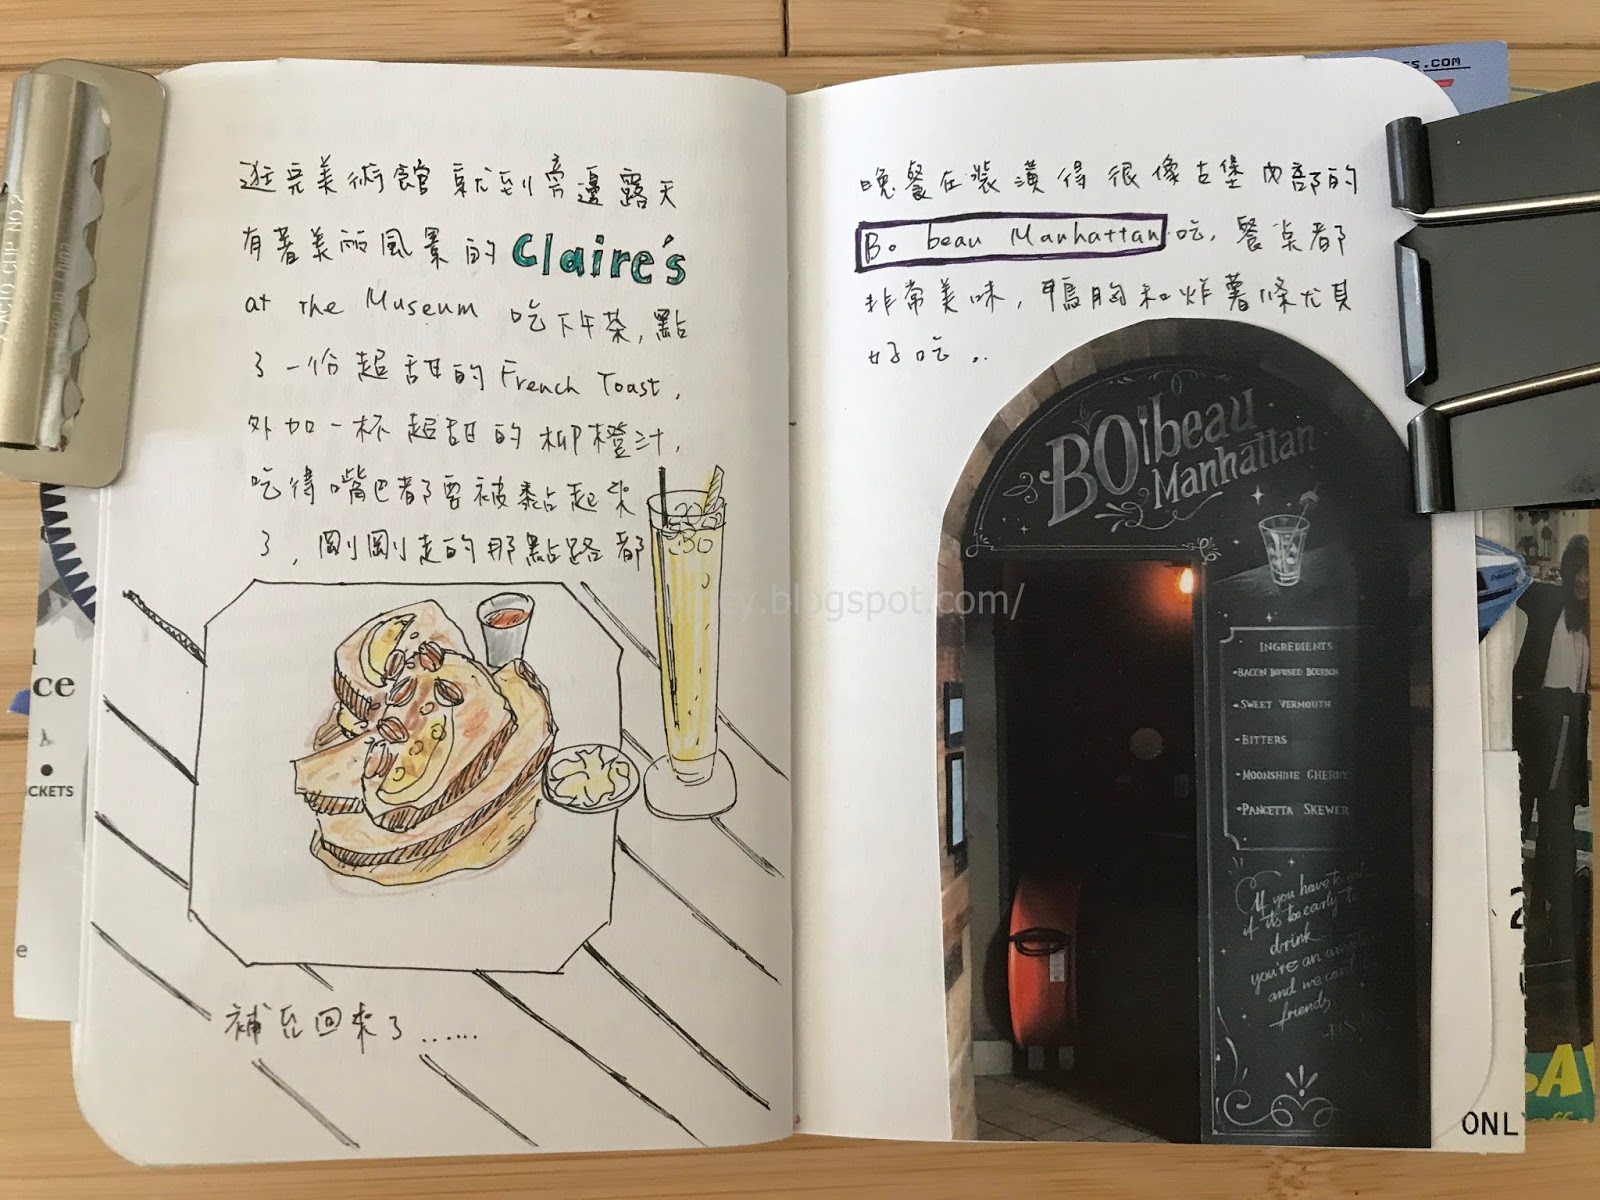 逛完美術館就到旁邊露天
有著美麗風景的 Claire's
at the Museum 吃下午茶,點
了一份超甜的 French Toast,
外加一杯超甜的柳橙汁,
吃得嘴巴都要被黏起來
了,剛剛走的那點路都
補回來了......
晚餐在裝潢得很像古堡內部的
Bo beau Manhattan 吃,餐點都
非常美味,鴨胸和炸薯條尤其
好吃..
BO beau
Manhattan
INGREDIENTS
-BACON INFUSED BOURBON
-SWEET VERMOUTH
-BITTERS
-MOONSHINE CHERRY
-PANCETTA SKEWER
If you have to
if its too early to
drink
you're an
and we can't
friends
cy.blogspot.com/
X-ACTO CLIP NO. 2
Made in China
ce
CKETS
e
S.COM
ONL